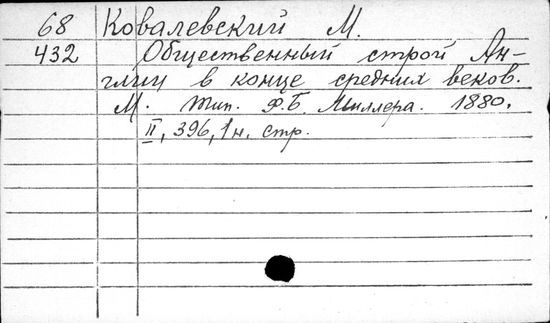 68 Ковалевский М.
432 Общественный строй Ан-
глии в конце средних веков.
М. тип. Ф.Б. Миллера. 1880.
II, 396, 1 н. стр.